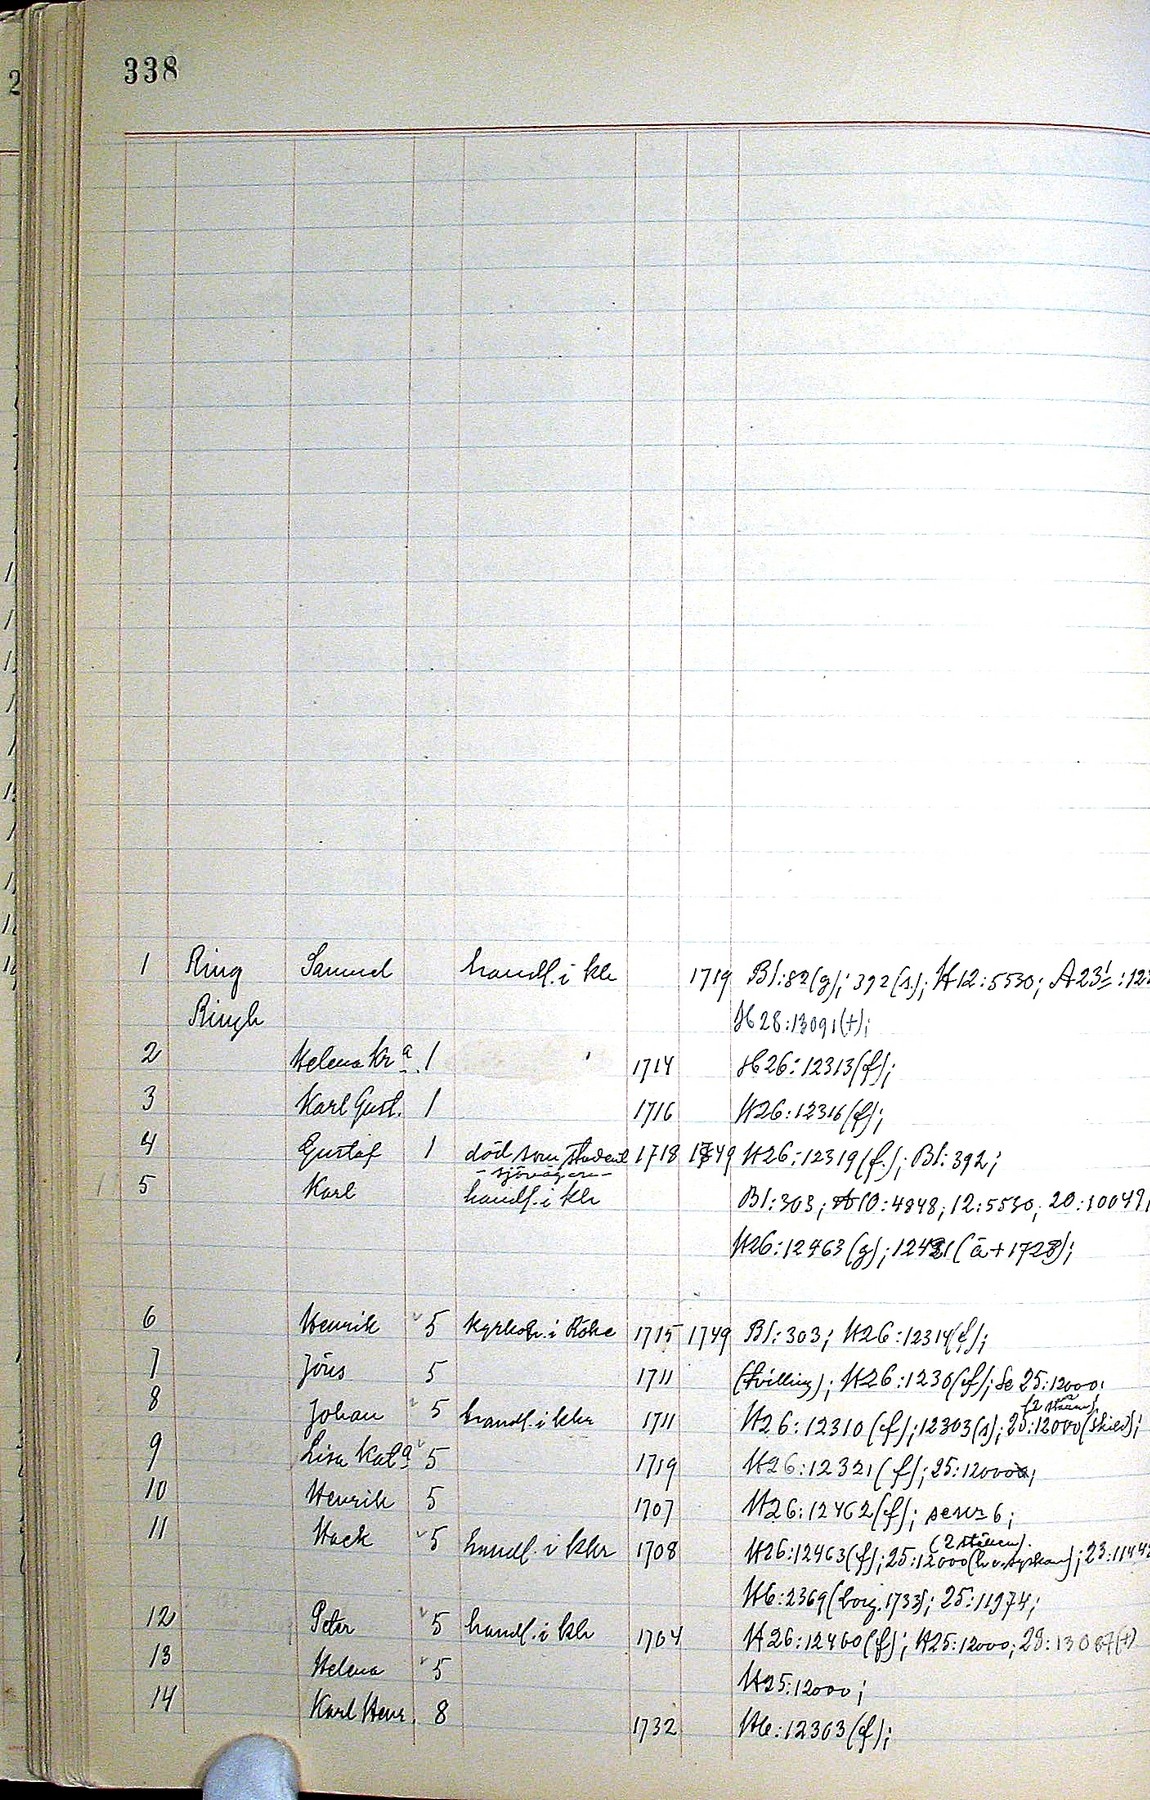 338
1 Ring Samuel handl. i khr 1719 Bl:82(g); 392(s.); H12:5530; A23
Ringh H28:13091(+);
2 Helena Kr a 1 1714 H26:12313(f);
3 Karl Gust. 1 1716 H26:12316(f);
4 Gustaf 1 död som student 1718 1749 H26:12319(f.); Bl:392;
5 Karl handl. i khr Bl:303; A10:4848; 12:5530; 20:10049;
H26:12463(g); (ä+1728);
6 Henrik 5 kyrkoh. i 1715 1749 Bl:303; H26:12314(f);
7 Jöns 5 1711 (tvilling); H26:1230(f); Se 25:12000;
(2 ställen)
8 Johan 5 handl. i khr 1711 H26:12310(f); 12303(s); 25:12000(skied);
9 Lisa Kat a 5 1719 H26:12321(f); 25:12000;
10 Henrik 5 1707 H26:12462(f); se nr 6;
(2 ställen).
11 Hack 5 handl. i khr 1708 H26:12463(f); 25:12000(h. o. syskon); 23:1144
H6:2369(borg. 1733); 25:11974;
12 Peter 5 handl. i khr 1704 H26:12460(f); H25:12000; 28:13067(+)
13 Helena 5 H25:12000;
14 Karl Henr. 8 1732 H6:12363(f);